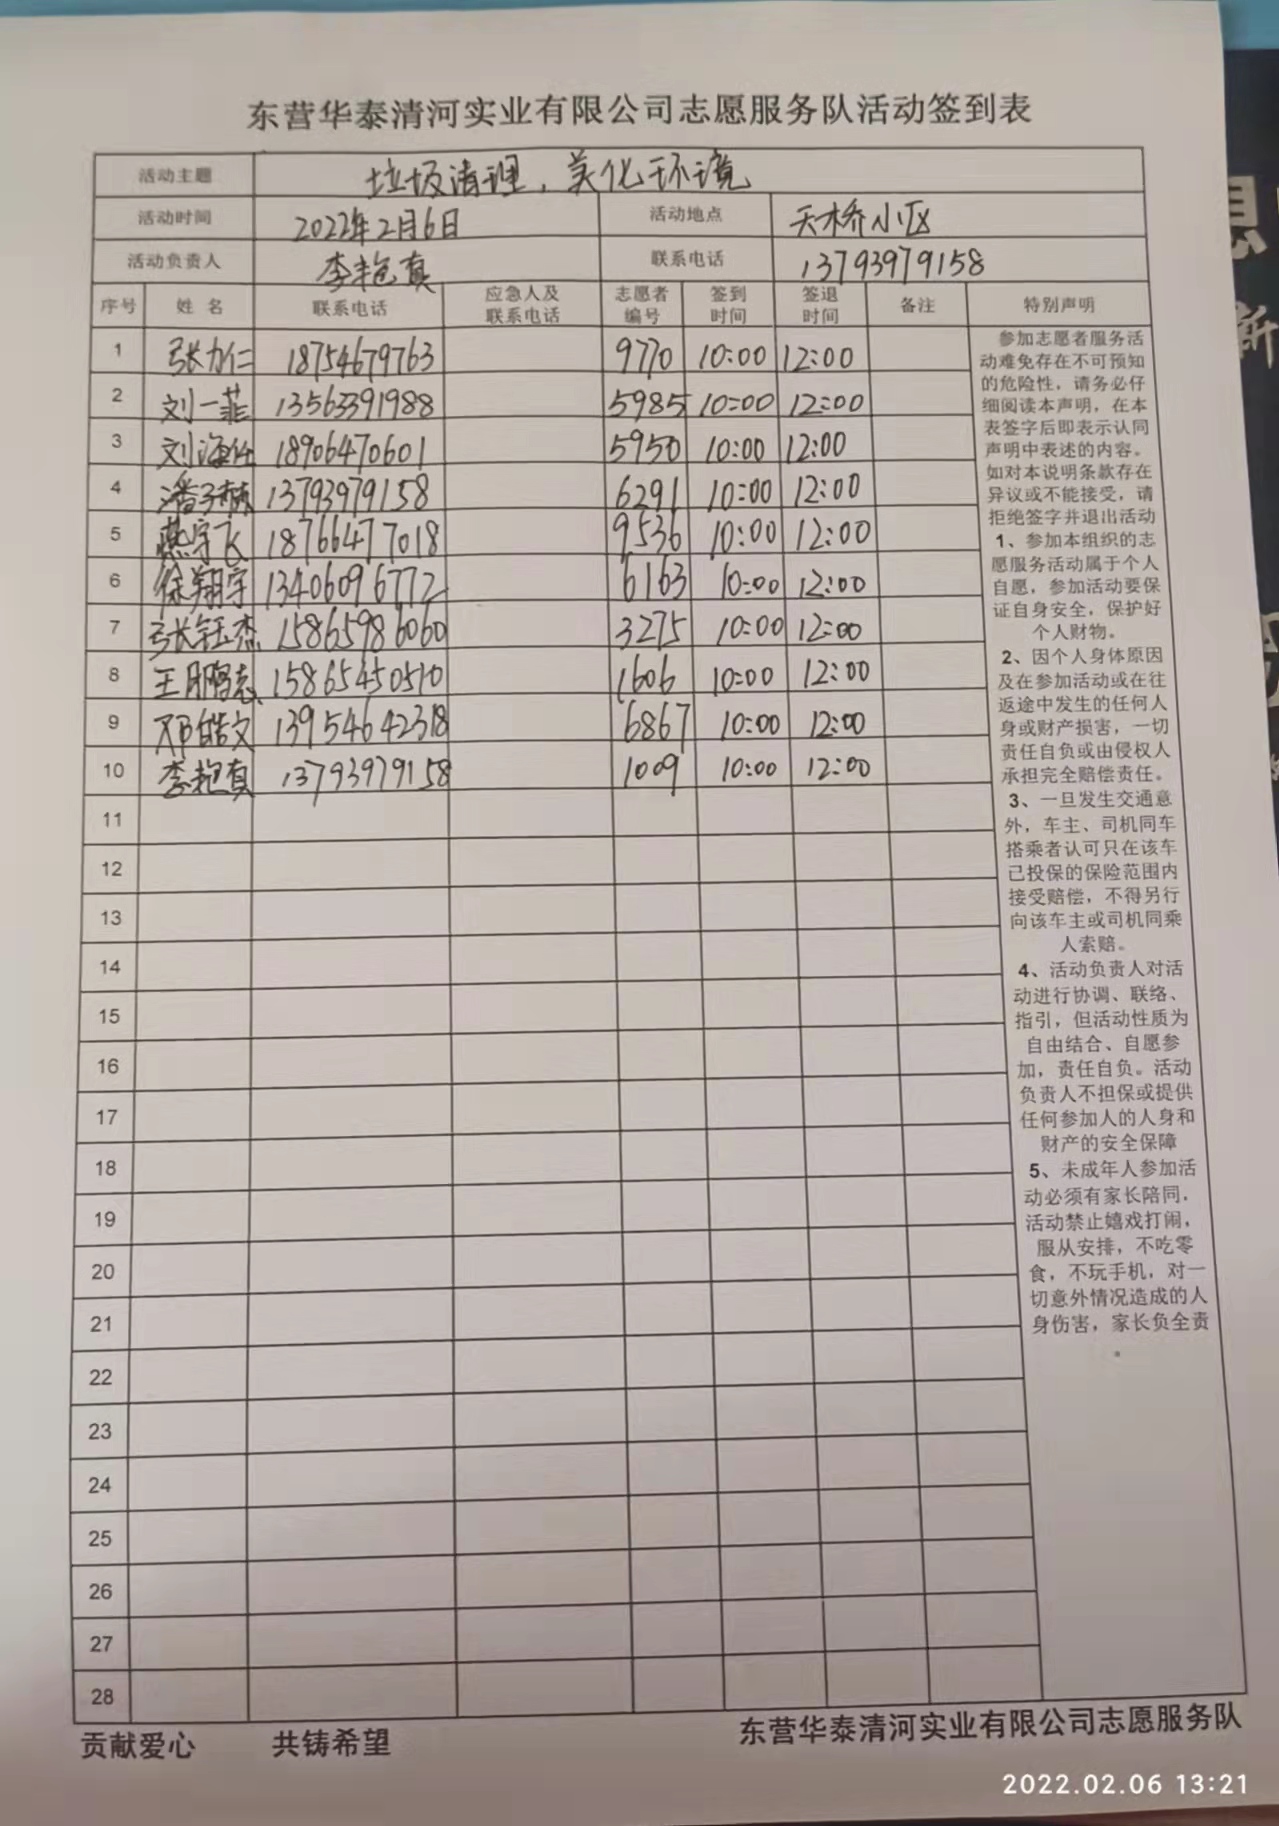 东营华泰清河实业有限公司志愿服务队活动签到表
活动主题 垃圾清理，美化环境
活动时间 2022年2月6日 活动地点 天桥小区
活动负责人 李艳真 联系电话 13793979158
序号 姓名 联系电话 应急人及联系电话 志愿者编号 签到时间 签退时间 备注 特别声明
1 张力仁 18754679763 9770 10:00 12:00
2 刘一菲 13563391988 5985 10:00 12:00
3 刘海 18906470601 5950 10:00 12:00
4 潘子 13793979158 6291 10:00 12:00
5 燕宇飞 18766477018 9536 10:00 12:00
6 徐翔宇 13406096772 6163 10:00 12:00
7 张钰杰 15865986060 3275 10:00 12:00
8 王鹏志 15865450510 1606 10:00 12:00
9 邓皓文 13954642318 6867 10:00 12:00
10 李艳真 13793979158 1009 10:00 12:00
11
12
13
14
15
16
17
18
19
20
21
22
23
24
25
26
27
28
参加志愿者服务活
动难免存在不可预知
的危险性，请务必仔
细阅读本声明，在本
表签字后即表示认同
声明中表述的内容。
如对本说明条款存在
异议或不能接受，请
拒绝签字并退出活动
1、参加本组织的志
愿服务活动属于个人
自愿，参加活动要保
证自身安全，保护好
个人财物。
2、因个人身体原因
及在参加活动或在往
返途中发生的任何人
身或财产损害，一切
责任自负或由侵权人
承担完全赔偿责任。
3、一旦发生交通意
外，车主、司机同车
搭乘者认可只在该车
已投保的保险范围内
接受赔偿，不得另行
向该车主或司机同乘
人索赔。
4、活动负责人对活
动进行协调、联络、
指引，但活动性质为
自由结合、自愿参
加，责任自负。活动
负责人不担保或提供
任何参加人的人身和
财产的安全保障
5、未成年人参加活
动必须有家长陪同，
活动禁止嬉戏打闹，
服从安排，不吃零
食，不玩手机，对一
切意外情况造成的人
身伤害，家长负全责
。
贡献爱心 共铸希望 东营华泰清河实业有限公司志愿服务队
2022.02.06 13:21